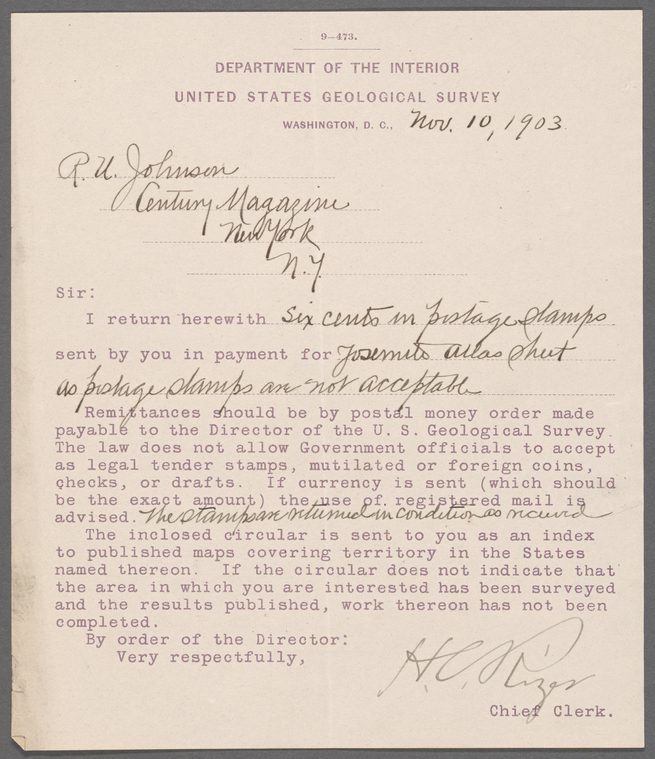 9—473.
DEPARTMENT OF THE INTERIOR
UNITED STATES GEOLOGICAL SURVEY
WASHINGTON, D. C., Nov. 10, 1903
R. U. Johnson
Century Magazine
New York
N.Y.
Sir:
I return herewith six cents in postage stamps
sent by you in payment for Yosemite atlas sheet
as postage stamps are not acceptable
Remittances should be by postal money order made
payable to the Director of the U. S. Geological Survey.
The law does not allow Government officials to accept
as legal tender stamps, mutilated or foreign coins,
checks, or drafts. If currency is sent (which should
be the exact amount) the use of registered mail is
advised. The stamps are returned in condition as received
The inclosed circular is sent to you as an index
to published maps covering territory in the States
named thereon. If the circular does not indicate that
the area in which you are interested has been surveyed
and the results published, work thereon has not been
completed.
By order of the Director:
Very respectfully,
H. C. Rizer
Chief Clerk.